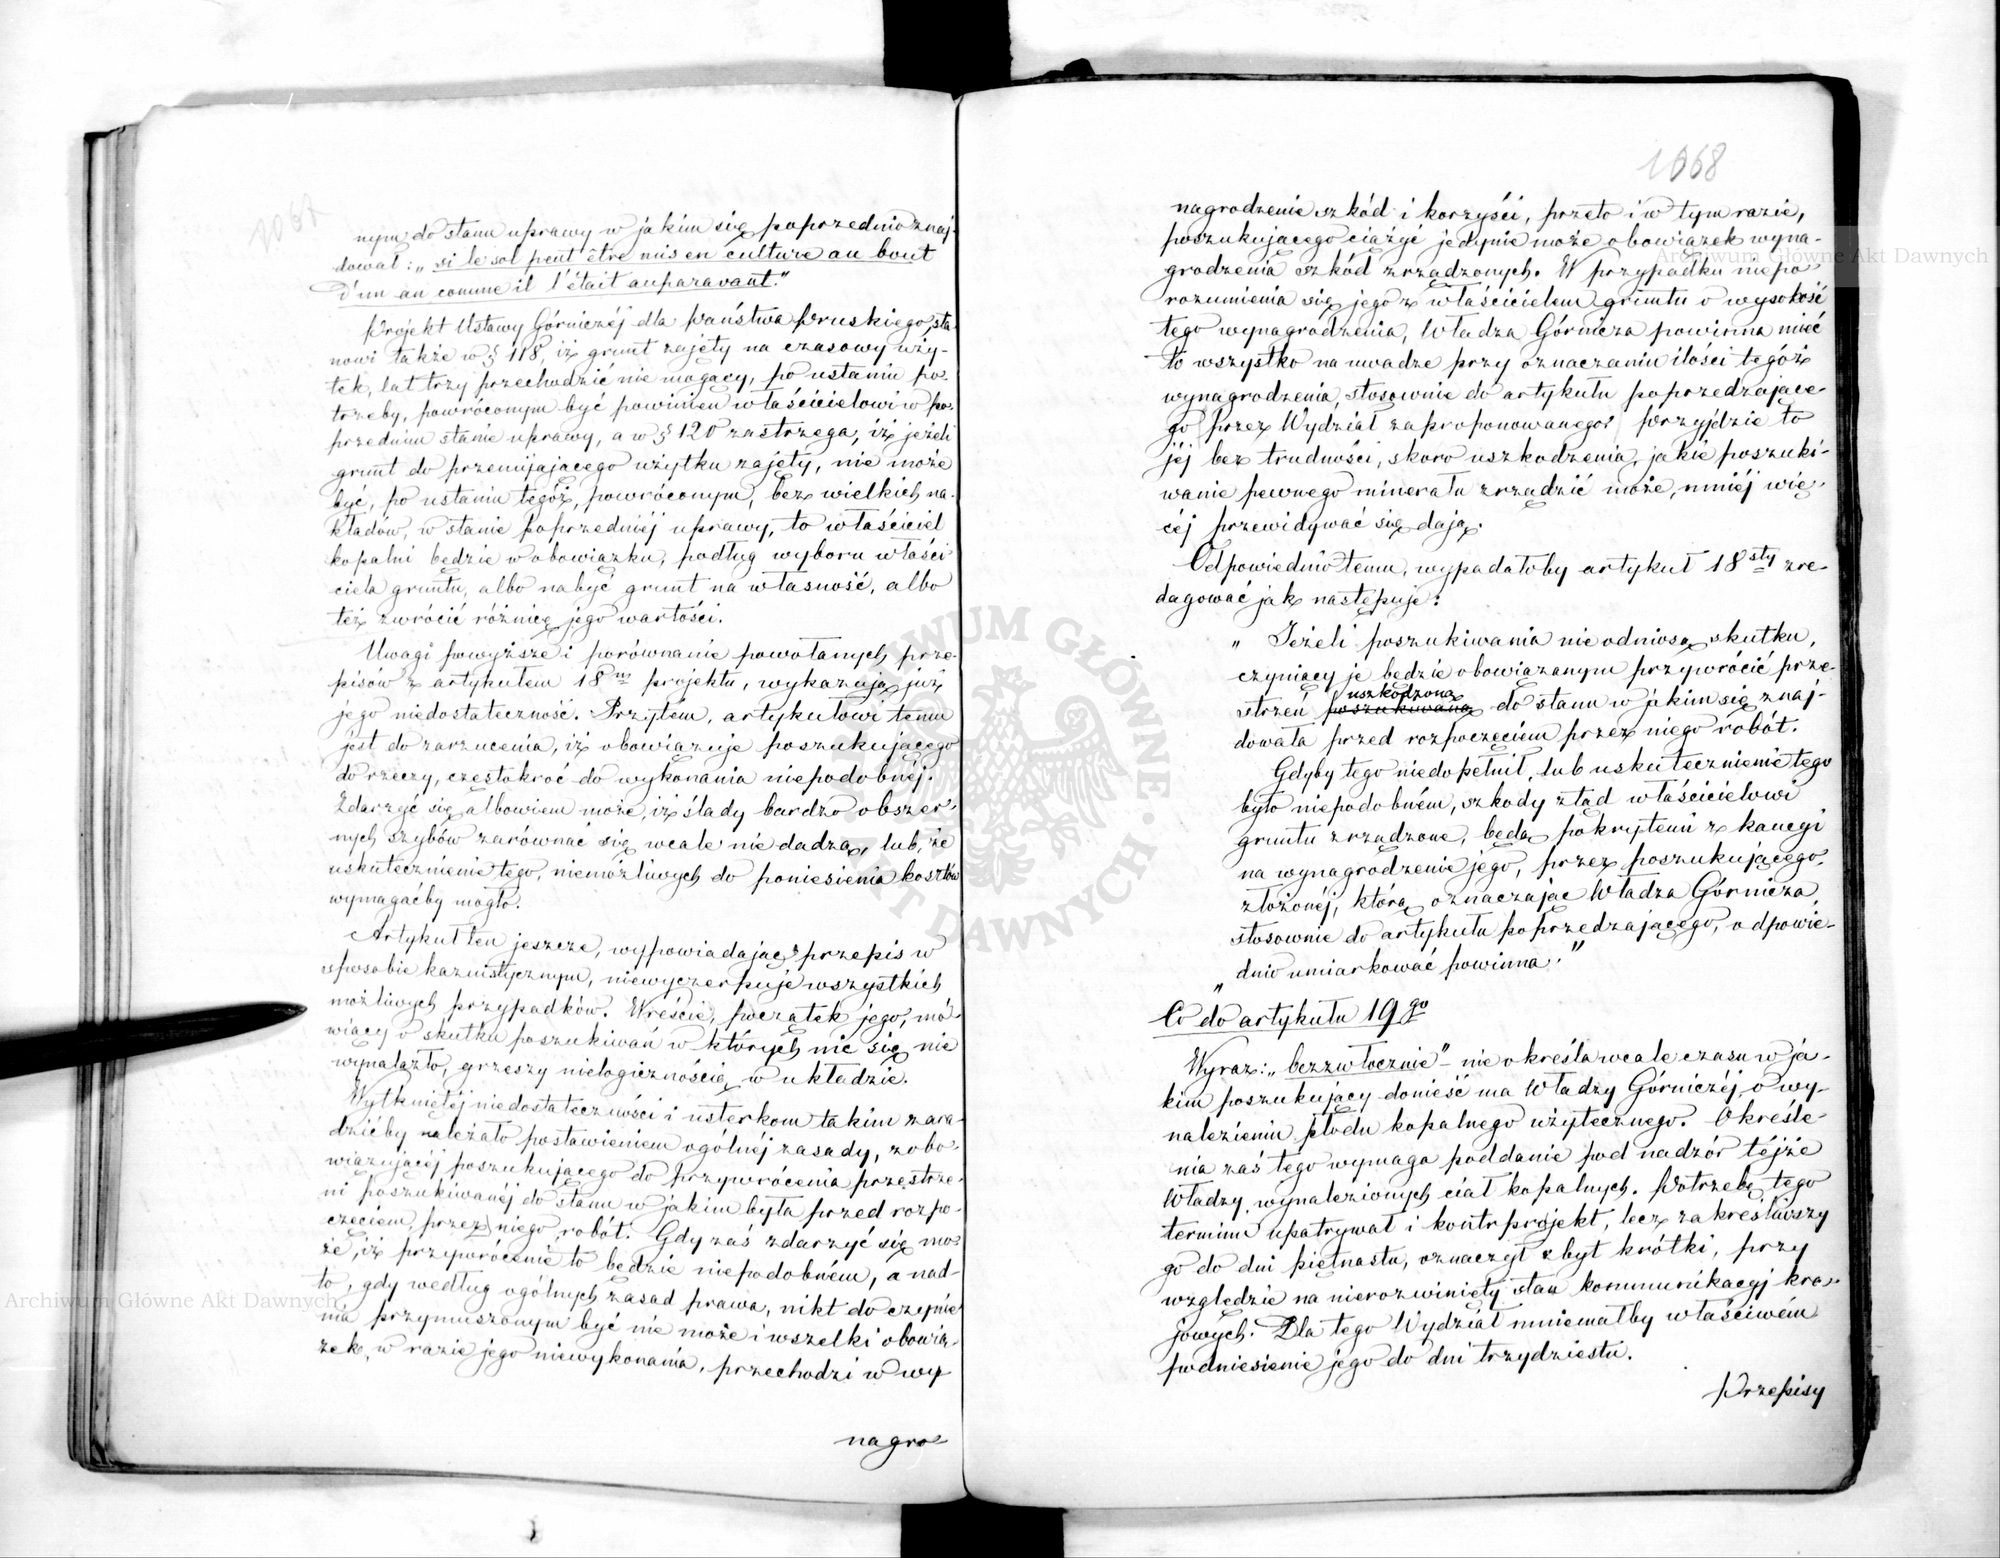 1067
nym do stanu uprawy w jakim się poprzednio znaj-
dował: „si le sol peut être mis en culture au bout
d'un an comme il l'était auparavant."
Projekt Ustawy Górniczéj dla państwa Pruskiego, sta-
nowi także w § 118, iż grunt zajęty na czasowy uży-
tek, lat trzy przechodzić nie mogący, po ustaniu po-
trzeby, powróconym być powinien właścicielowi w po-
przednim stanie uprawy, a w § 120 zastrzega, iż jeżeli
grunt do przemijającego użytku zajęty, nie może
być, po ustaniu tegóż, powróconym, bez wielkich na-
kładów, w stanie poprzedniéj uprawy, to właściciel
kopalni będzie w obowiązku, podług wyboru właści
ciela gruntu, albo nabyć grunt na własność, albo
też zwrócić różnicę jego wartości.
Uwagi powyższe i porównanie powołanych prze-
pisów z artykułem 18m projektu, wykazują już
jego niedostateczność. Przytém, artykułowi temu
jest do zarzucenia, iż obowiązuje poszukującego
do rzeczy, częstokroć do wykonania niepodobnéj.
Zdarzyć się albowiem może, iż ślady bardzo obszer-
nych szybów zarównać się wcale nie dadzą, lub, że
uskutecznienie tego, niemożliwych do poniesienia kosztów
wymagaćby mogło.
Artykuł ten jeszcze, wypowiadając przepis w
sposobie kazuistycznym, niewyczerpuje wszystkich
możliwych przypadków. Wreście, początek jego, mó-
wiący o skutku poszukiwań w których nic się nie
wynalazło, grzeszy nielogicznością w układzie.
Wytkniętéj niedostateczności i usterkom takim zara-
dzićby należało postawieniem ogólnéj zasady, zobo-
wiązującéj poszukującego do przywrócenia przestrze-
ni poszukiwanéj do stanu w jakim była przed rozpo-
częciem, przez niego, robót. Gdy zaś zdarzyć się mo-
że, iż przywrócenie to będzie niepodobném, a nad-
to, gdy według ogólnych zasad prawa, nikt do czynie
nia przymuszonym być nie może i wszelki obowią-
zek, w razie jego niewykonania, przechodzi w wy
nagro-
1068
nagrodzenie szkód i korzyści, przeto i w tym razie,
poszukującego ciążyć jedynie może obowiązek wyna-
grodzenia szkód zrządzonych. W przypadku niepo-
rozumienia się jego z właścicielem gruntu o wysokość
tego wynagrodzenia, Władza Górnicza powinna mieć
to wszystko na uwadze przy oznaczaniu ilości tegóż
wynagrodzenia, stosownie do artykułu poprzedzające-
go przez Wydział zaproponowanego. Przyjdzie to
jéj bez trudności, skoro uszkodzenia, jakie poszuki-
wanie pewnego minerału zrządzić może, mniéj wię-
céj przewidywać się dają.
Odpowiednio temu, wypadałoby artykuł 18sty zre-
dagować jak następuje:
„ Jeżeli poszukiwania nie odniosą skutku,
czyniący je będzie obowiązanym przywrócić prze-
uszkodzoną
strzeń poszukiwaną do stanu w jakim się znaj-
dowała przed rozpoczęciem przez niego robót.
Gdyby tego niedopełnił, lub uskutecznienie tego
było niepodobném, szkody ztąd właścicielowi
gruntu zrządzone, będą pokrytemi z kaucyi
na wynagrodzenie jego, przez poszukującego,
złożonéj, którą oznaczając Władza Górnicza,
stosownie do artykułu poprzedzającego, odpowie-
„ dnio umiarkować powinna."
Co do artykułu 19go
Wyraz: „bezzwłocznie" - nie określa wcale czasu w ja-
kim poszukujący donieść ma Władzy Górniczéj, o wy-
nalezieniu płodu kopalnego użytecznego. Określe-
nia zaś tego wymaga poddanie pod nadzór téjże
Władzy, wynalezionych ciał kopalnych. Potrzebę tego
terminu upatrywał i kontrprojekt, lecz zakreśliwszy
go do dni piętnastu, oznaczył zbyt krótki, przy
względzie na nierozwinięty stan kommunikacyj kra-
jowych. Dla tego Wydział mniemałby właściwém
podniesienie jego do dni trzydziestu.
Przepisy
ARCHIWUM GŁÓWNE AKT DAWNYCH
Archiwum Główne Akt Dawnych
Archiwum Główne Akt Dawnych